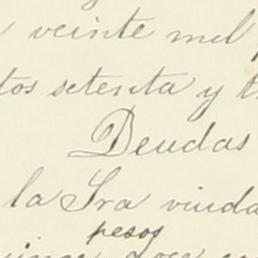 veinte mil
tos setenta y
Deudas
la Sra viuda
pesos
doce